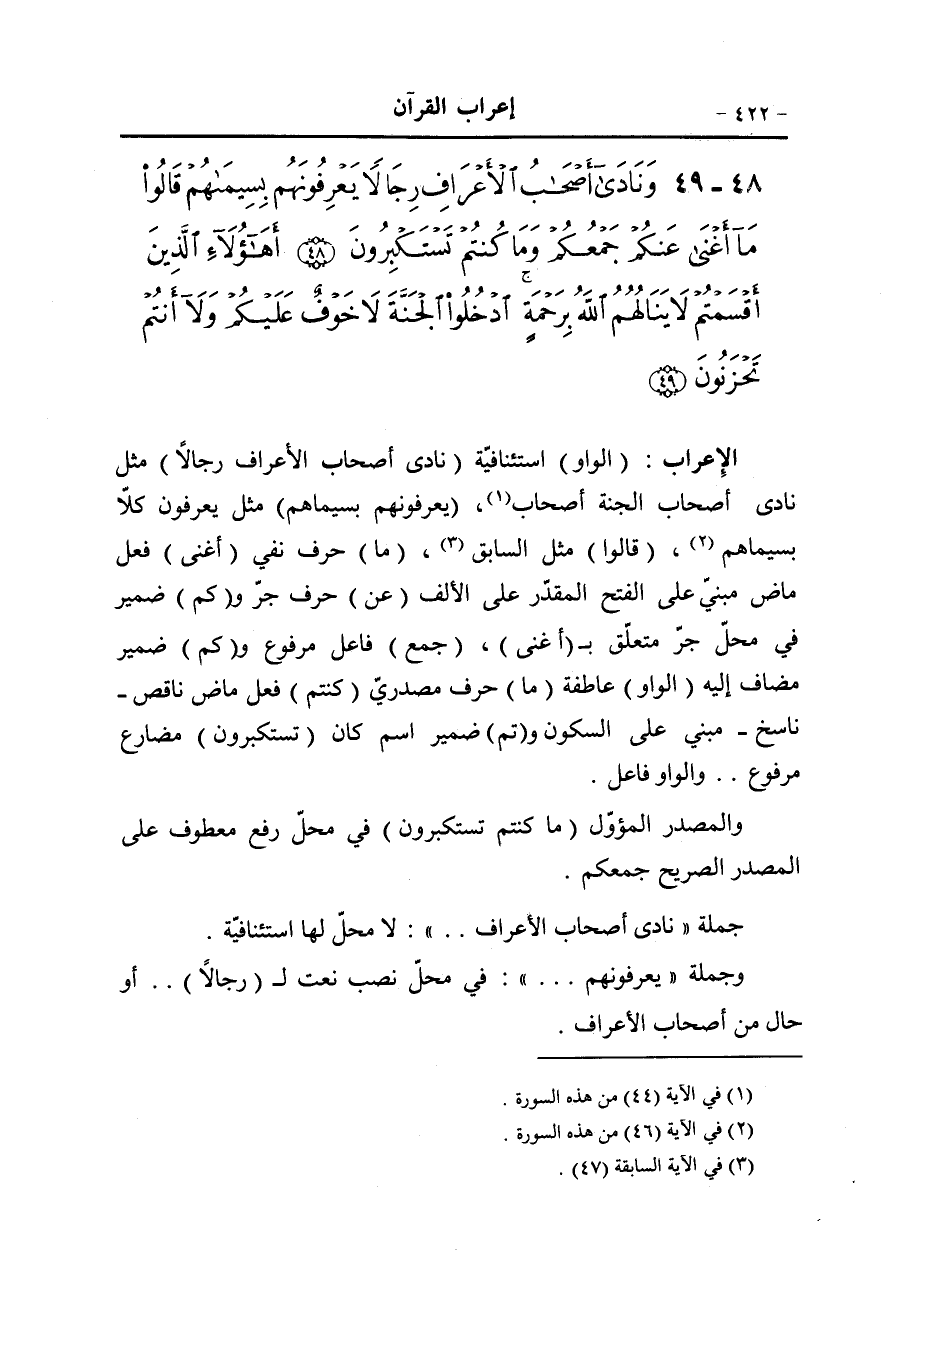 - ٤٢٢ -
إعراب القرآن
٤٨ - ٤٩ وَنَادَىٰٓ أَصْحَٰبُ ٱلْأَعْرَافِ رِجَالًا يَعْرِفُونَهُم بِسِيمَىٰهُمْ قَالُوا۟
مَآ أَغْنَىٰ عَنكُمْ جَمْعُكُمْ وَمَا كُنتُمْ تَسْتَكْبِرُونَ ﴿٤٨﴾ أَهَٰٓؤُلَآءِ ٱلَّذِينَ
أَقْسَمْتُمْ لَا يَنَالُهُمُ ٱللَّهُ بِرَحْمَةٍ ۚ ٱدْخُلُوا۟ ٱلْجَنَّةَ لَا خَوْفٌ عَلَيْكُمْ وَلَآ أَنتُمْ
تَحْزَنُونَ ﴿٤٩﴾
الإعراب : ( الواو ) استئنافيّة ( نادى أصحاب الأعراف رجالاً ) مثل
نادى أصحاب الجنة أصحاب(١)، (يعرفونهم بسيماهم) مثل يعرفون كلّا
بسيماهم (٢) ، ( قالوا ) مثل السابق (٣) ، ( ما ) حرف نفي ( أغنى ) فعل
ماض مبنيّ على الفتح المقدّر على الألف ( عن ) حرف جرّ و( كم ) ضمير
في محلّ جرّ متعلّق بـ(أغنى ) ، ( جمع ) فاعل مرفوع و( كم ) ضمير
مضاف إليه ( الواو ) عاطفة ( ما ) حرف مصدريّ ( كنتم ) فعل ماض ناقص -
ناسخ - مبني على السكون و(تم) ضمير اسم كان ( تستكبرون ) مضارع
مرفوع . . والواو فاعل .
والمصدر المؤوّل ( ما كنتم تستكبرون ) في محلّ رفع معطوف على
المصدر الصريح جمعكم .
جملة « نادى أصحاب الأعراف . . » : لا محلّ لها استئنافيّة .
وجملة « يعرفونهم . . . » : في محلّ نصب نعت لـ ( رجالاً ) . . أو
حال من أصحاب الأعراف .
(١) في الآية (٤٤) من هذه السورة .
(٢) في الآية (٤٦) من هذه السورة .
(٣) في الآية السابقة (٤٧) .